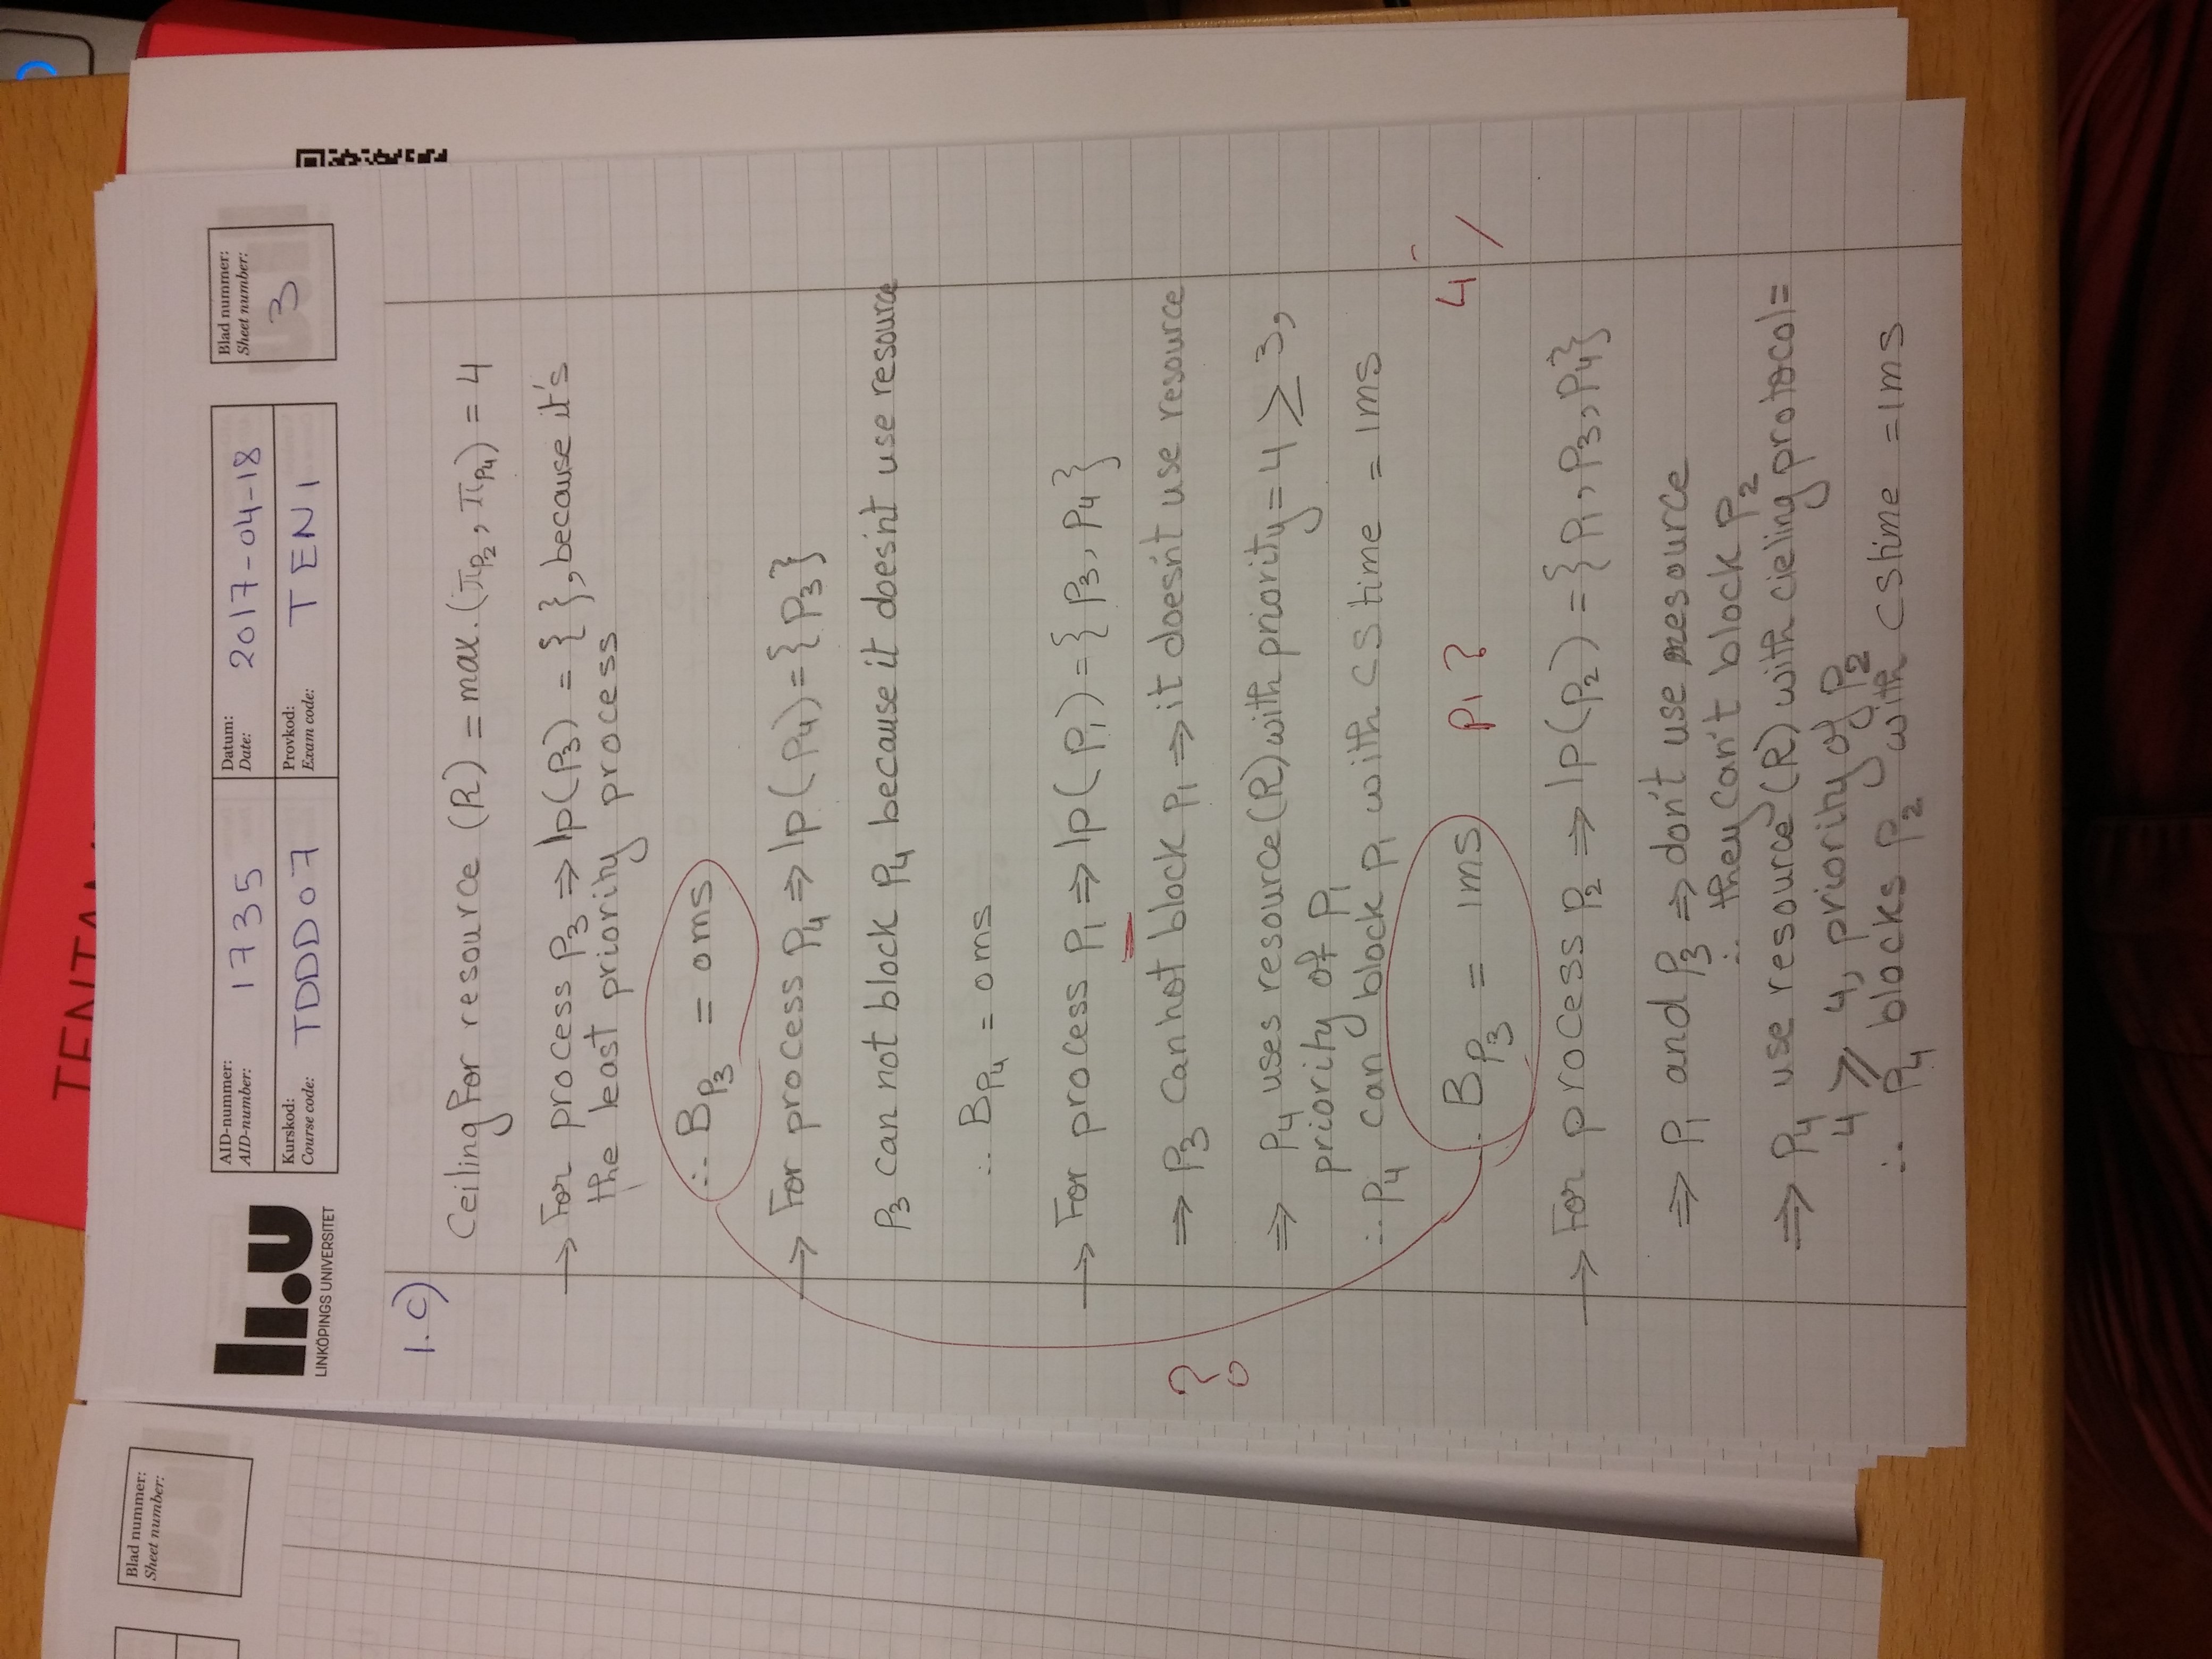 TENTA
Blad nummer:
Sheet number:
LiU
LINKÖPINGS UNIVERSITET
AID-nummer:
AID-number:
1735
Datum:
Date:
2017-04-18
Blad nummer:
Sheet number:
3
Kurskod:
Course code:
TDDD07
Provkod:
Exam code:
TEN1
1.c)
Ceiling for resource (R) = max.(πP₂, πP₄) = 4
→ For process P₃ ⇒ lp(P₃) = { }, because it's
the least priority process
∴ BP₃ = 0ms
→ For process P₄ ⇒ lp(P₄) = {P₃}
P₃ can not block P₄ because it doesint use resource
∴ BP₄ = 0ms
→ For process P₁ ⇒ lp(P₁) = {P₃, P₄}
⇒ P₃ Cannot block P₁ ⇒ it doesint use resource
?
⇒ P₄ uses resource (R) with priority = 4 ≥ 3,
priority of P₁
∴ P₄ can block P₁ with cs time = 1ms
∴ BP₃ = 1ms P1? 4
→ For process P₂ ⇒ lp(P₂) = {P₁, P₃, P₄}
⇒ P₁ and P₃ ⇒ don't use resource
∴ they can't block P₂
⇒ P₄ use resource (R) with cieling protocol =
4 ≥ 4, priority of P₂
∴ P₄ blocks P₂ with cstime = 1ms